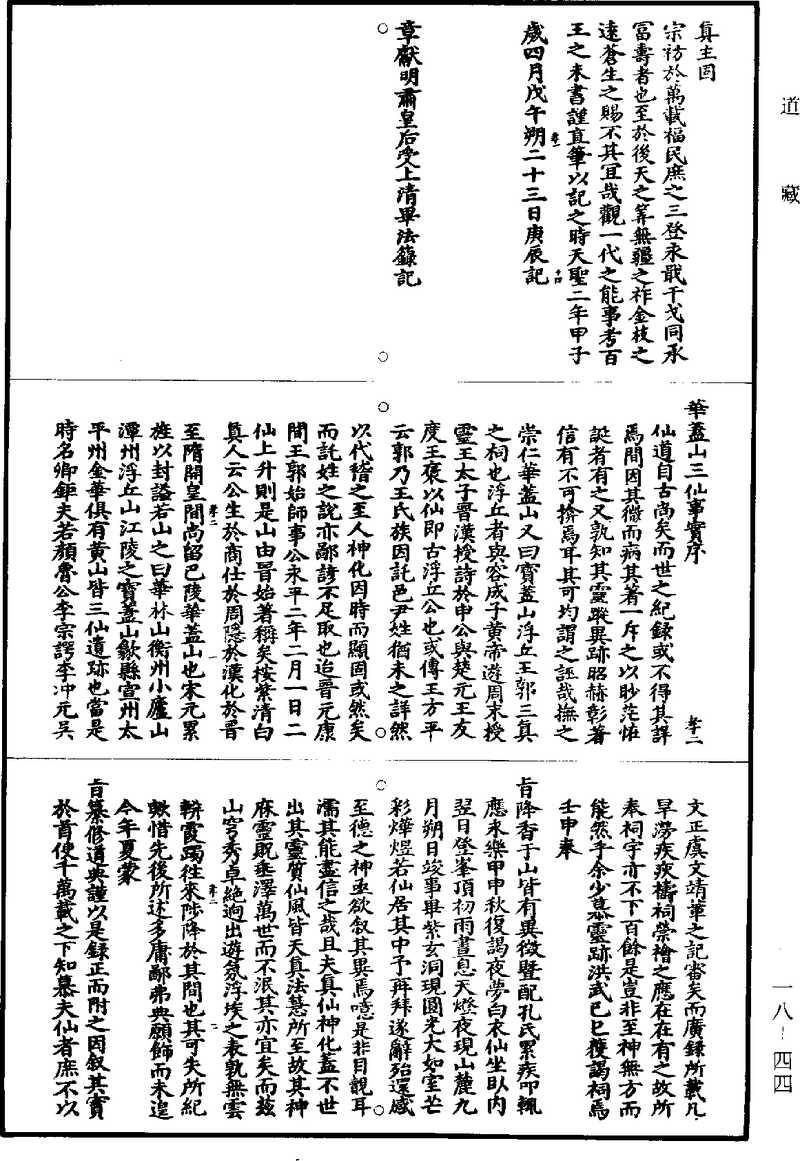 道藏
真主固
宗祊於萬載福民庶之三登永戢干戈同承
富壽者也至於後天之筭無疆之祚金枝之
遠蒼生之賜不其宜哉觀一代之能事考百
王之末書謹直筆以記之時天聖二年甲子
歲四月戊午朔二十三日庚辰記
章獻明肅皇后受上清畢法籙記
華蓋山三仙事實序
仙道自古尚矣而世之紀録或不得其詳
焉間因其微而病其著一斥之以眇茫恠
誕者有之又孰知其靈蹤異跡昭赫彰著
信有不可揜焉耳其可均謂之誣哉撫之
崇仁華蓋山又曰寶蓋山浮丘王郭三真
之祠也浮丘者與容成子黃帝遊周末授
靈王太子晋漢授詩於申公與楚元王友
度王褒以仙即古浮丘公也或傳王方平
云郭乃王氏族因託邑尹姓猶未之詳然
以代稽之至人神化因時而顯固或然矣
而託姓之說亦鄙諺不足取也迨晉元康
間王郭始師事公永平二年二月一日二
仙上升則是山由晋始著稱矣按紫清白
真人云公生於商仕於周隱於漢化於晋
至隋開皇間尚留巴陵華蓋山也宋元累
旌以封謚若山之曰華林山衡州小廬山
潭州浮丘山江陵之寶蓋山歙縣宣州太
平州金華俱有黄山皆三仙遺跡也當是
時名卿鉅夫若顏魯公李宗諤李冲元吳
文正虞文靖軰之記審矣而廣録所載凡
旱澇疾疢禱祠禜禬之應在在有之故所
奉祠宇亦不下百餘是豈非至神無方而
能然乎余少慕靈跡洪武己巳獲謁祠焉
壬申奉
旨降香于山皆有異徵暨配孔氏累疾叩輒
應永樂甲申秋復謁夜夢白衣仙坐卧内
翌日登峯頂初雨晝息天燈夜現山麓九
月朔日竣事畢紫玄洞現圓光大如室芒
彩燁煜若仙居其中予再拜遂辭殆還感
至德之神亟欲叙其異焉噫是非目覩耳
濡其能盡信之哉且夫真仙神化蓋不世
出其靈質仙風皆天真法慧所至故其神
庥靈貺垂澤萬世而不泯其亦宜矣而兹
山穹秀卓絶逈出遊氛浮埃之表孰無雲
軿霞躅往來陟降於其間也其可失所紀
歟惜先後所述多庸鄙弗典願飾而未遑
今年夏蒙
旨纂修道典謹以是録正而附之因叙其實
於首使千萬載之下知慕夫仙者庶不以
一八－四四